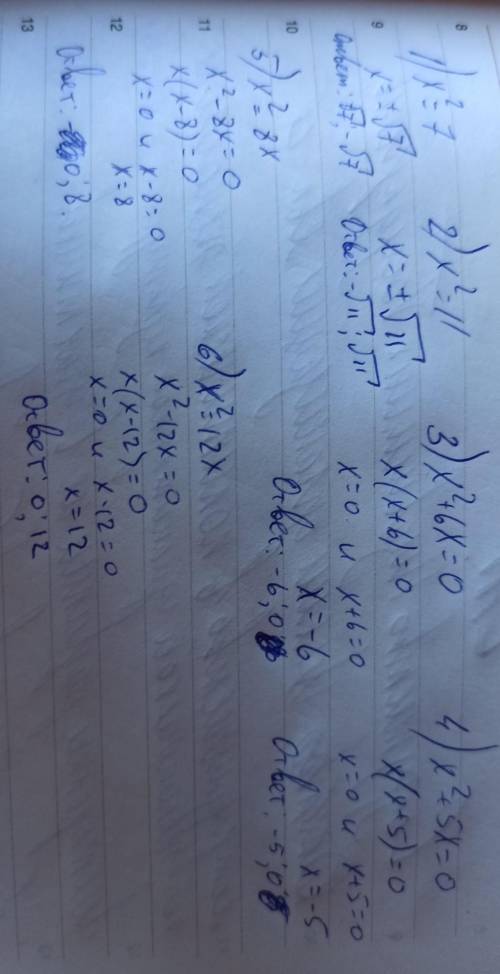 8
1) x²=7
x=±√7
Ответ: √7; -√7
2) x²=11
x=±√11
Ответ: -√11; √11
3) x²+6x=0
x(x+6)=0
x=0 и x+6=0
x=-6
Ответ: -6; 0
4) x²+5x=0
x(x+5)=0
x=0 и x+5=0
x=-5
Ответ: -5; 0
9
10
5) x²=8x
x²-8x=0
x(x-8)=0
x=0 и x-8=0
x=8
Ответ: 0; 8.
6) x²=12x
x²-12x=0
x(x-12)=0
x=0 и x-12=0
x=12
Ответ: 0; 12
11
12
13